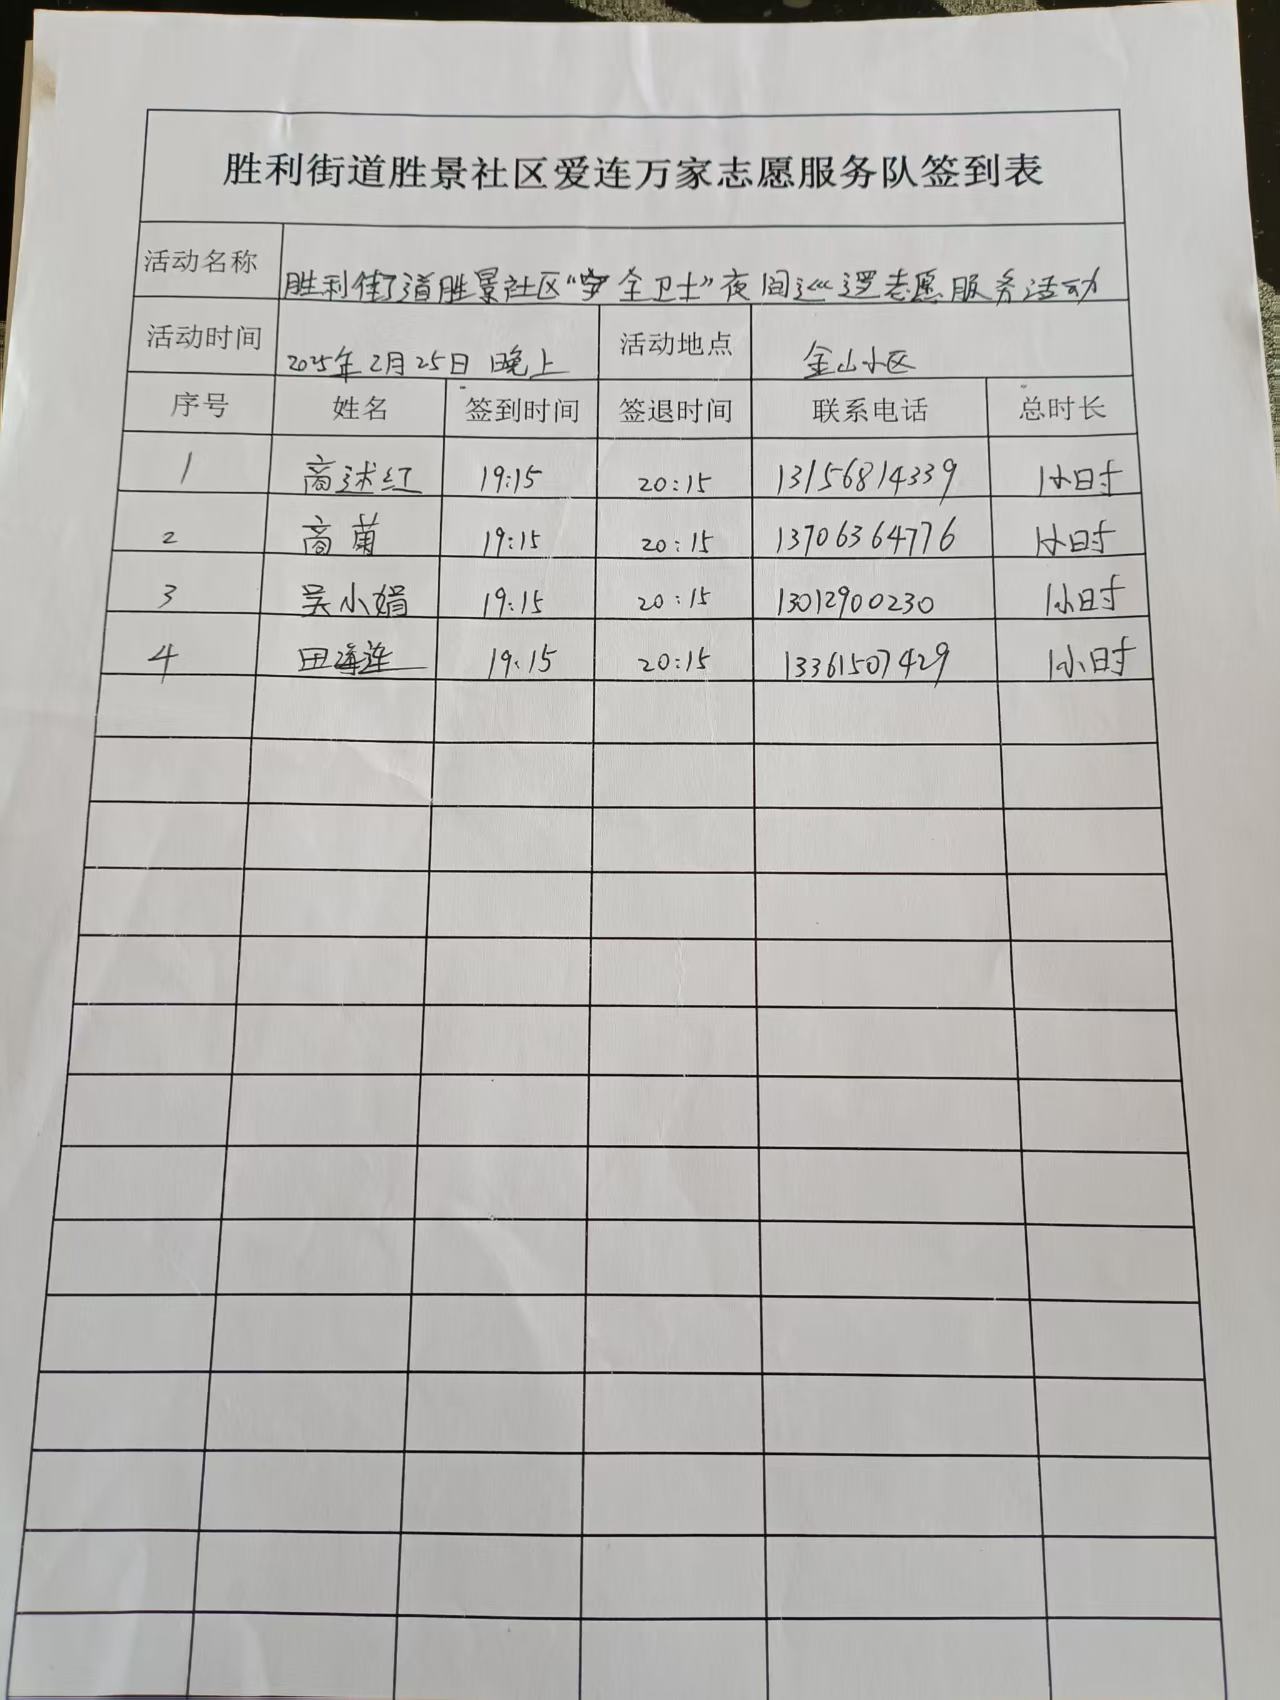 胜利街道胜景社区爱连万家志愿服务队签到表
活动名称 胜利街道胜景社区“安全卫士”夜间巡逻志愿服务活动
活动时间 2025年2月25日 晚上 活动地点 金山小区
序号 姓名 签到时间 签退时间 联系电话 总时长
1 商述红 19:15 20:15 13156814339 1小时
2 商菊 19:15 20:15 13706364776 1小时
3 吴小娟 19:15 20:15 13012900230 1小时
4 田海莲 19:15 20:15 13361507429 1小时